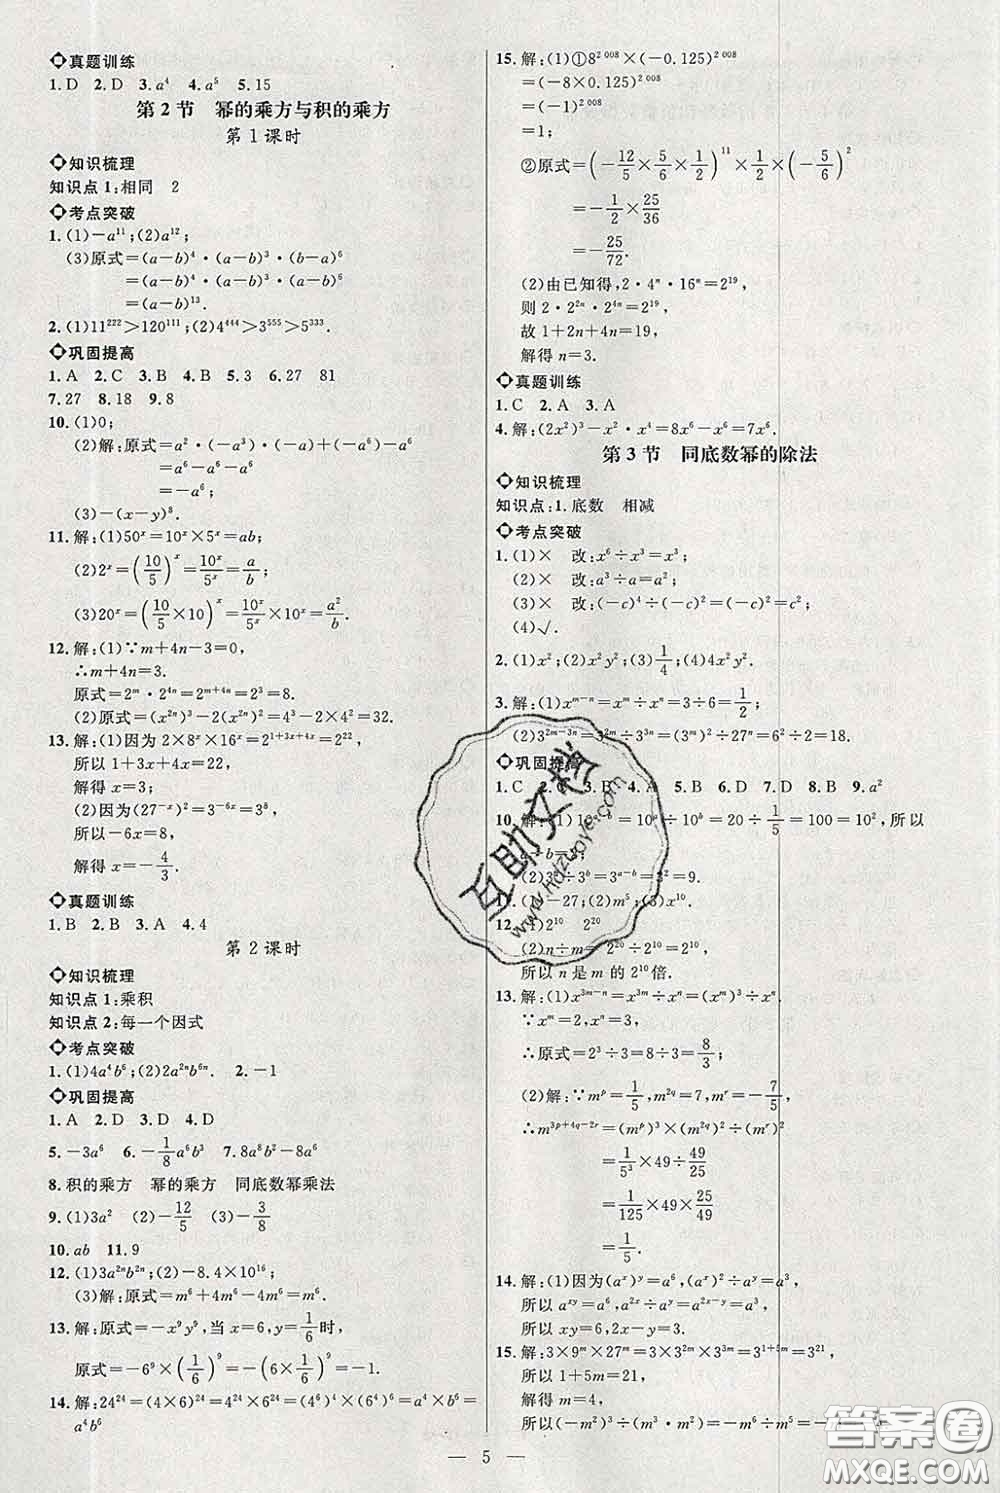 真题训练
1.D 2.D 3.a⁴ 4.a⁵ 5.15
第2节 幂的乘方与积的乘方
第1课时
知识梳理
知识点1:相同 2
考点突破
1.(1)-a¹¹;(2)a¹²;
(3)原式=(a-b)⁴·(a-b)³·(b-a)⁶
=(a-b)⁴·(a-b)³·(a-b)⁶
=(a-b)¹³.
2.(1)11²²²>120¹¹¹;(2)4⁴⁴⁴>3⁵⁵⁵>5³³³.
巩固提高
1.A 2.C 3.B 4.B 5.3 6.27 81
7.27 8.18 9.8
10.(1)0;
(2)解:原式=a²·(-a³)·(-a)+(-a⁶)-a⁶
=a⁶-a⁶-a⁶
=-a⁶;
(3)-(x-y)⁸.
11.解:(1)50ˣ=10ˣ×5ˣ=ab;
(2)2ˣ=(10/5)ˣ=10ˣ/5ˣ=a/b;
(3)20ˣ=(10/5×10)ˣ=10ˣ/5ˣ×10ˣ=a²/b.
12.解:(1)∵m+4n-3=0,
∴m+4n=3.
原式=2ᵐ·2⁴ⁿ=2ᵐ⁺⁴ⁿ=2³=8.
(2)原式=(x²ⁿ)³-2(x²ⁿ)²=4³-2×4²=32.
13.解:(1)因为2×8ˣ×16ˣ=2¹⁺³ˣ⁺⁴ˣ=2²²,
所以1+3x+4x=22,
解得x=3;
(2)因为(27⁻ˣ)²=3⁻⁶ˣ=3⁸,
所以-6x=8,
解得x=-4/3.
真题训练
1.B 2.B 3.A 4.4
第2课时
知识梳理
知识点1:乘积
知识点2:每一个因式
考点突破
1.(1)4a⁴b⁶;(2)2a²ⁿb⁶ⁿ. 2.-1
巩固提高
1.A 2.D 3.D 4.D
5.-3a⁶ 6.-1/8a⁶b³ 7.8a⁶-8a⁶
8.积的乘方 幂的乘方 同底数幂乘法
9.(1)3a² (2)-12/5 (3)-3/8
10.ab 11.9
12.(1)3a²ⁿb²ⁿ;(2)-8.4×10¹⁶;
(3)解:原式=m⁶+4m⁶-4m⁶=m⁶.
13.解:原式=-x⁹y⁹,当x=6,y=1/6时,
原式=-6⁹×(1/6)⁹=-(6×1/6)⁹=-1.
14.解:24²⁴=(4×6)²⁴=4²⁴×6²⁴=(4⁶)⁴×(6⁴)⁶=a⁴×b⁶=
a⁴b⁶
15.解:(1)①8²⁰⁰⁸×(-0.125)²⁰⁰⁸
=(-8×0.125)²⁰⁰⁸
=(-1)²⁰⁰⁸
=1;
②原式=(-12/5×5/6×1/2)¹¹×1/2×(-5/6)²
=-1/2×25/36
=-25/72.
(2)由已知得,2·4ⁿ·16ⁿ=2¹⁹,
则2·2²ⁿ·2⁴ⁿ=2¹⁹,
故1+2n+4n=19,
解得n=3.
真题训练
1.C 2.A 3.A
4.解:(2x²)³-x²·x⁴=8x⁶-x⁶=7x⁶.
第3节 同底数幂的除法
知识梳理
知识点:1.底数 相减
考点突破
1.(1)× 改:x⁶÷x³=x³;
(2)× 改:a³÷a=a²;
(3)× 改:(-c)⁴÷(-c)²=(-c)²=c²;
(4)√.
2.(1)x²;(2)x²y²;(3)1/4;(4)4x²y².
3.解:(1)xᵐ⁻ⁿ=xᵐ÷xⁿ=3÷6=1/2;
(2)3²ᵐ⁻³ⁿ=3²ᵐ÷3³ⁿ=(3ᵐ)²÷27ⁿ=6²÷2=18.
巩固提高
1.C 2. 3.D 4.C 5.A 6.D 7.D 8.B 9.a²
10.解:(1)10ᵃ⁻ᵇ=10ᵃ÷10ᵇ=20÷1/5=100=10²,所以
a-b=2;
(2)3ᵃ÷3ᵇ=3ᵃ⁻ᵇ=3²=9.
11.(1)-27;(2)m⁵;(3)x¹⁰.
12.(1)2¹⁰ 2²⁰
(2)n÷m=2²⁰÷2¹⁰=2¹⁰,
所以n是m的2¹⁰倍.
13.解:(1)x³ᵐ⁻ⁿ=x³ᵐ÷xⁿ=(xᵐ)³÷xⁿ,
∵xᵐ=2,xⁿ=3,
∴原式=2³÷3=8÷3=8/3;
(2)解:∵mᵖ=1/5,m²q=7,mʳ=-7/5,
∴m³ᵖ⁺⁴q⁻²ʳ=(mᵖ)³×(m²q)²÷(mʳ)²
=1/5³×49÷49/25
=1/125×49×25/49
=1/5.
14.解:(1)因为(aˣ)ʸ=a⁶,(aˣ)²÷aʸ=a³,
所以aˣʸ=a⁶,a²ˣ÷aʸ=a²ˣ⁻ʸ=a³,
所以xy=6,2x-y=3.
15.解:3×9ᵐ×27ᵐ=3×3²ᵐ×3³ᵐ=3¹⁺⁵ᵐ=3²¹,
所以1+5m=21,
解得m=4,
所以(-m²)³÷(m³·m²)=-m⁶÷m⁵=
— 5 —
互助文档
www.hdzuoye.com
答案圈
MXQE.COM